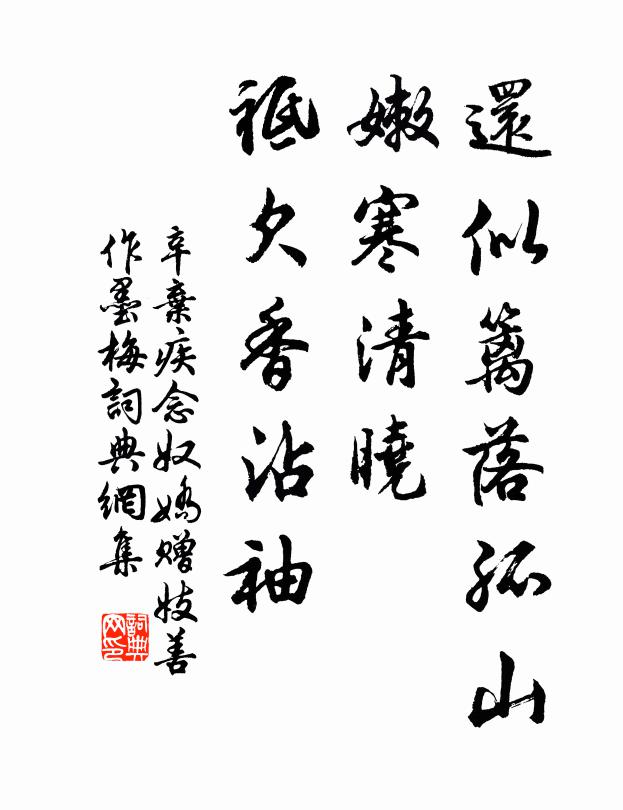 還似籬落孤山
嫩寒清曉
祗欠香沾袖
辛棄疾念奴嬌贈妓善
作墨梅詞典網集
詞典
网印